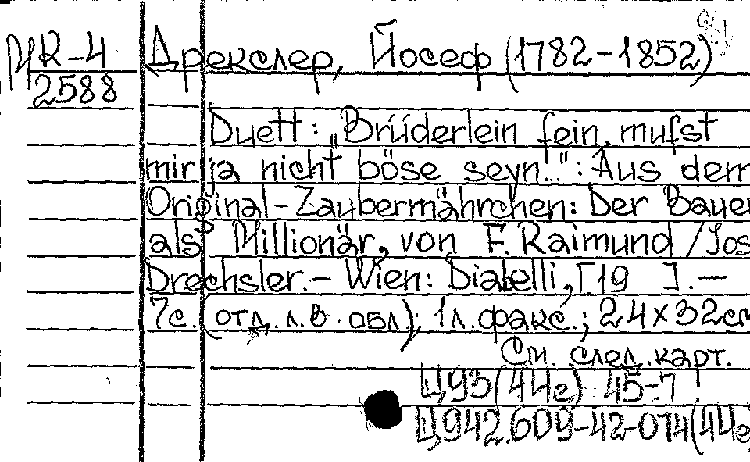 МК-4 Дрекслер, Йосеф (1782-1852)
2588
Duett: "Brüderlein fein, mußt
mir ja nicht böse seyn..": Aus dem
Original-Zaubermährchen: Der Bauer
als Millionär, von F. Raimund / Jos
Drechsler.- Wien: Diabelli, [19 ].—
7с. (отд. л. в. обл); 1л. факс.; 24×32см
См. след. карт.
Ц93(44е) 45-7
Ц942.609-42-074(44е